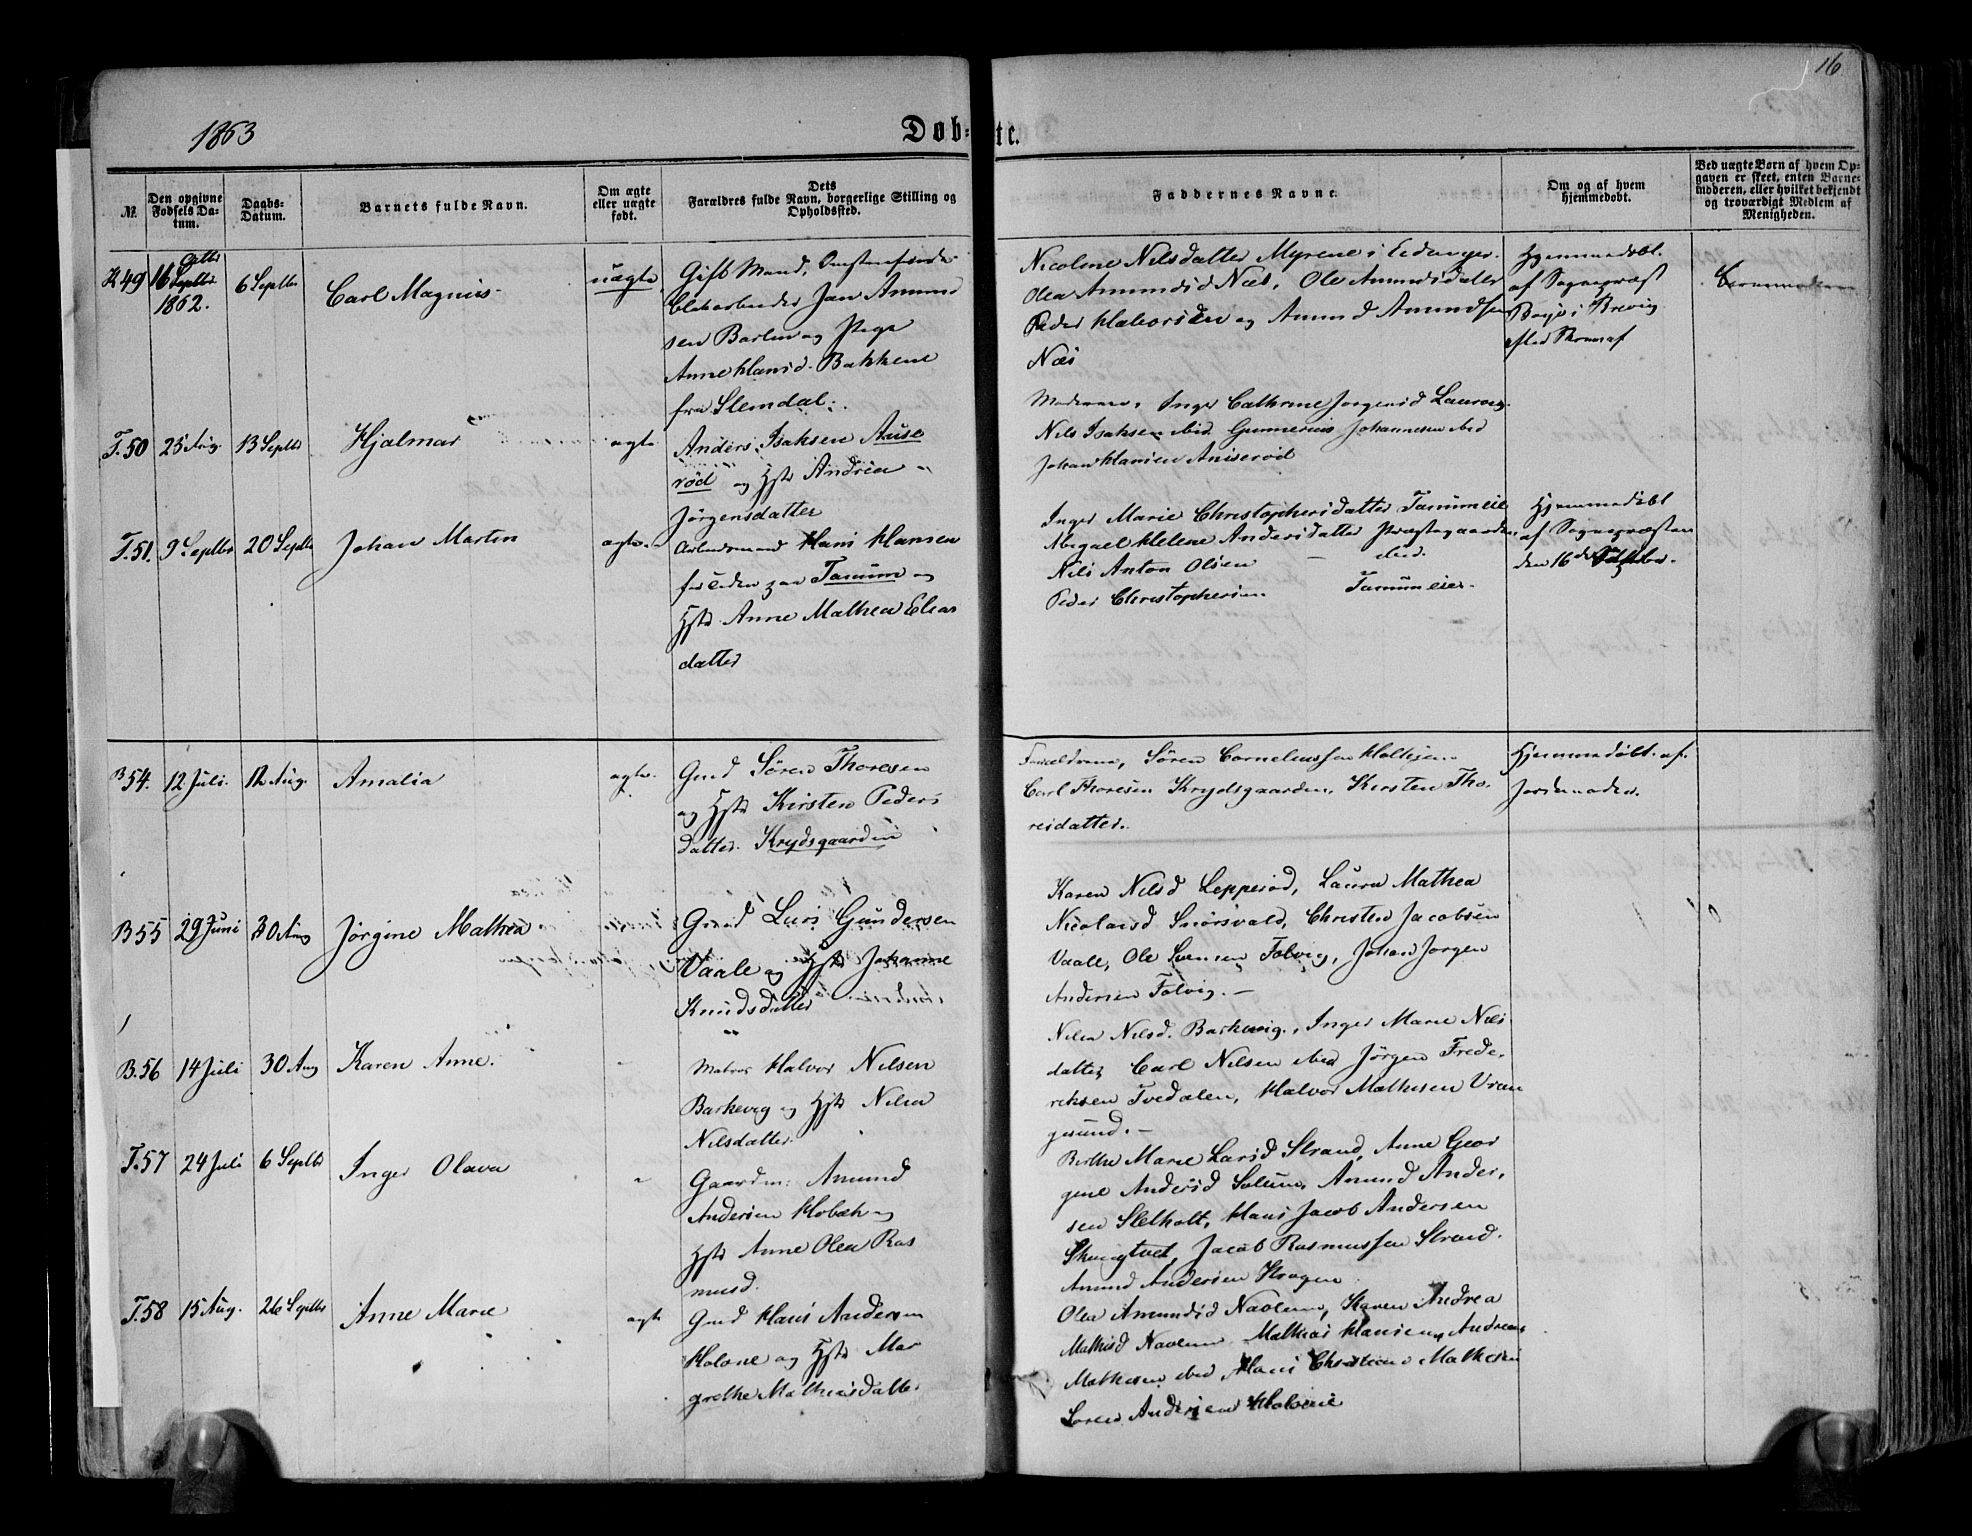 16
1863
Døb=
te.
№
Den opgivne Fødsels Da-tum.
Daabs-Datum.
Barnets fulde Navn.
Om ægte eller uægte født.
Dets Forældres fulde Navn, borgerlige Stilling og Opholdssted.
Faddernes Navne.
Om og af hvem hjemmedøbt.
Ved uægte Børn af hvem Op-gaven er skeet, enten Barne-moderen, eller hvilket bekjendt og troværdigt Medlem af Menigheden.
K 49
16 Septbr
1862.
6 Septbr
Carl Magnus
uægte
Gift Mand,
Jan Amund
sen Barlin og Pige
Anne Hansd. Bakkene
fra Slemdal.
Nicoline Nilsdatter Myrene i Eidanger.
Olea Amundsd Næs, Ole
Peder Halvorsen og Amund Amundsen
Næs
Hjemmedøbt
af Sognepræst
i Brevig
Barnemoderen
T. 50
25 Aug.
13 Septbr
Hjalmar
ægte
Anders Isaksen Anise
rød og Hstr Andrea
Jørgensdatter
Moderen, Inger Cathrine Jørgensd
Nils Isaksen ibid. Gunnerius Johannesen ibid
Johan Hansen Aniserød
T. 51.
9 Septbr
20 Septbr
Johan Martin
ægte
Arbeidsmand Hans Hansen
Tanum og
Hstr. Anne Mathea Elias
datter
Inger Marie Christophersdatter Tanumeie
Abigael Helene Andersdatter Præstegaarden
Nils Anton Olsen — ibid.
Peder Christophersen Tanumeie.
Hjemmedøbt
af Sognepræsten
den 16de Septbr.
B 54.
12 Juli.
12 Aug.
Amalia
ægte.
Gmd Søren Thoresen
og Hstr Kirsten Peders
datter. Krydsgaarden
Forældrene, Søren Corneliussen
Carl Thoresen Krydsgaarden, Kirsten Tho-
resdatter.
Hjemmedøbt af
Jordemoder.
B 55
29 Juni
30 Aug
Jørgine Mathea
Gmd Lars Gundersen
Vaale og Hstr Johanne
Knudsdatter
Karen Nilsd Lepperød, Laura Mathea
Nicolaisd Snørsvald, Christen Jacobsen
Vaale, Ole Svensen Folvig, Johan Jørgen
Andersen Folvig. —
B. 56
14 Juli
30 Aug
Karen Anne.
"
Matros Halvor Nilsen
Barkevig og Hstr Nilea
Nilsdatter
Nilea Nilsd. Barkevig, Inger Marie Nils
datter, Carl Nilsen ibid Jørgen Frede-
riksen Tvedalen, Halvor Mathisen Vran
gsund. —
T. 57
24 Juli
6 Septbr
Inger Olava
"
Gaardm: Amund
Andersen Hobæk og
Hstr Anne Olea Ras
musd.
Berthe Marie Larsd Strand, Anne Geor
gine Andersd Solum, Amund Ander-
sen Sletholt, Hans Jacob Andersen
Jacob Rasmussen Strand.
Amund Andersen Krogen
T. 58
15 Aug.
26 Septbr
Anne Marie
ægte
Gmd Hans Andersen
Holone og Hstr Mar
grethe Mathiasdatter
Olea Amundsd Navlum, Karen Andrea
Mathisd Navlum Mathias Hansen, Andreas
Mathisen ibid Hans Christian Mathisen
Søren Andersen Holone